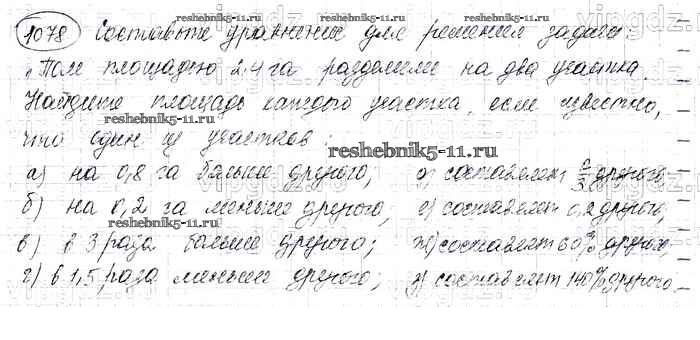 1078 Составьте уравнение для решения задачи:
reshebnik5-11.ru
„Поле площадью 2,4 га разделили на два участка.
Найдите площадь каждого участка, если известно,
что один из участков:
reshebnik5-11.ru
а) на 0,8 га больше другого; д) составляет другого;
б) на 0,2 га меньше другого; е) составляет 0,2 другого;
reshebnik5-11.ru
в) в 3 раза больше другого; ж) составляет 60% другого;
г) в 1,5 раза меньше другого; з) составляет 140% другого.